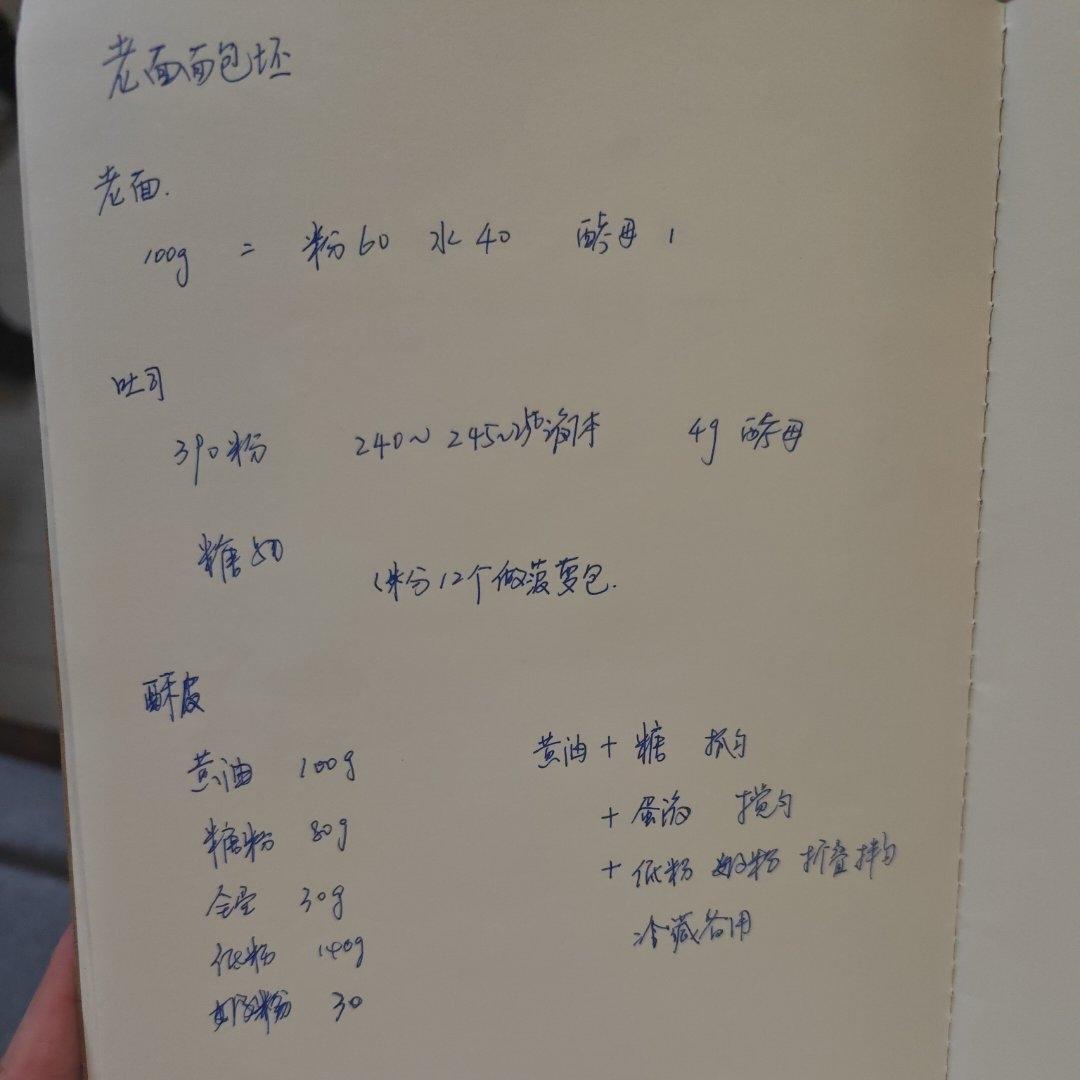 老面面包坯
老面.
100g = 粉60 水40 酵母1
吐司
390粉 240~245~250液体 4g酵母
糖50
1份12个做菠萝包.
酥皮
黄油 100g
糖粉 80g
全蛋 30g
低粉 140g
奶粉 30
黄油+糖 抓匀
+蛋液 搅匀
+低粉 奶粉 折叠拌匀
冷藏备用